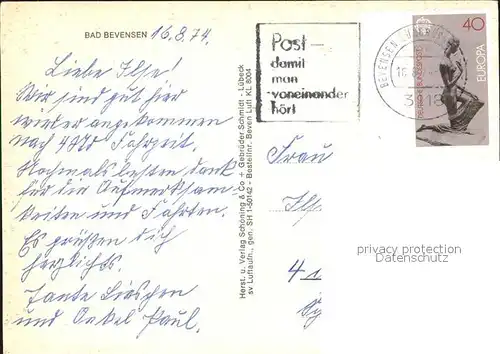 BAD BEVENSEN
16.8.74.
Liebe Ilse!
Wir sind gut hier
wieder angekommen
nach Std Fahrzeit.
Nochmals besten Dank
für die Aufmerksam
keiten und Fahrten.
Es grüßen dich
herzlichst.
Tante Lieschen
und Onkel Paul.
Herst. u. Verlag Schöning & Co + Gebrüder Schmidt - Lübeck
sv Luftaufn., gen. SH 1-50142 - Bestellnr. Beven Luft KL 8004
Post –
damit
man
voneinander
hört
BEVENSEN
3118
40
EUROPA
Frau
Ils
4
privacy protection
watermark